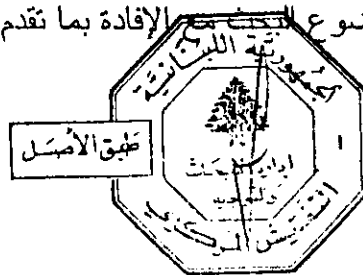 ضوع البحث مع الإفادة بما تقدم
الجمهورية اللبنانية
طبق الأصل
ادارة الابحاث
والتوجيه
التفتيش المركزي